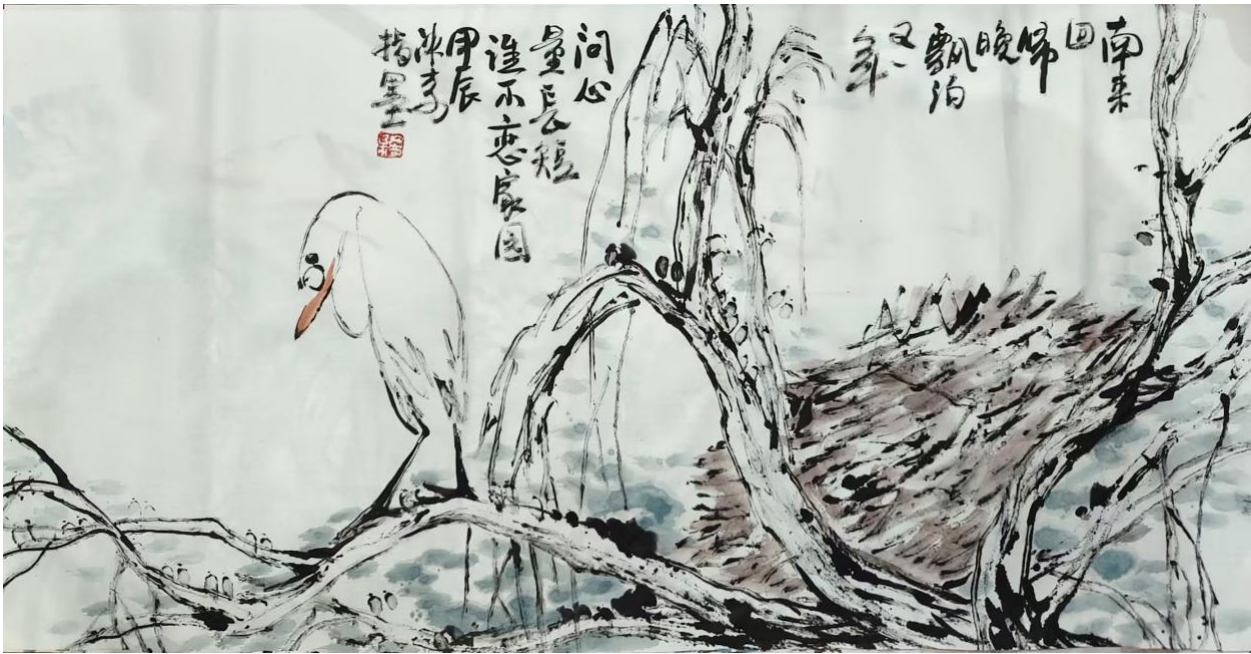 南来
回
归
晚
飘泊
又一
年
问心
量長短
谁不恋家园
甲辰
指墨